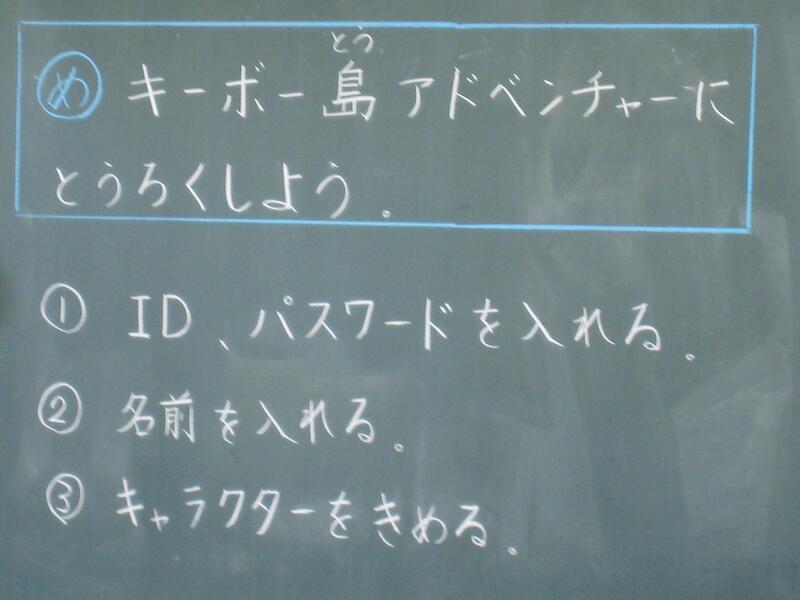 とう
め キーボー島アドベンチャーに
とうろくしよう。
① ID、パスワードを入れる。
② 名前を入れる。
③ キャラクターをきめる。